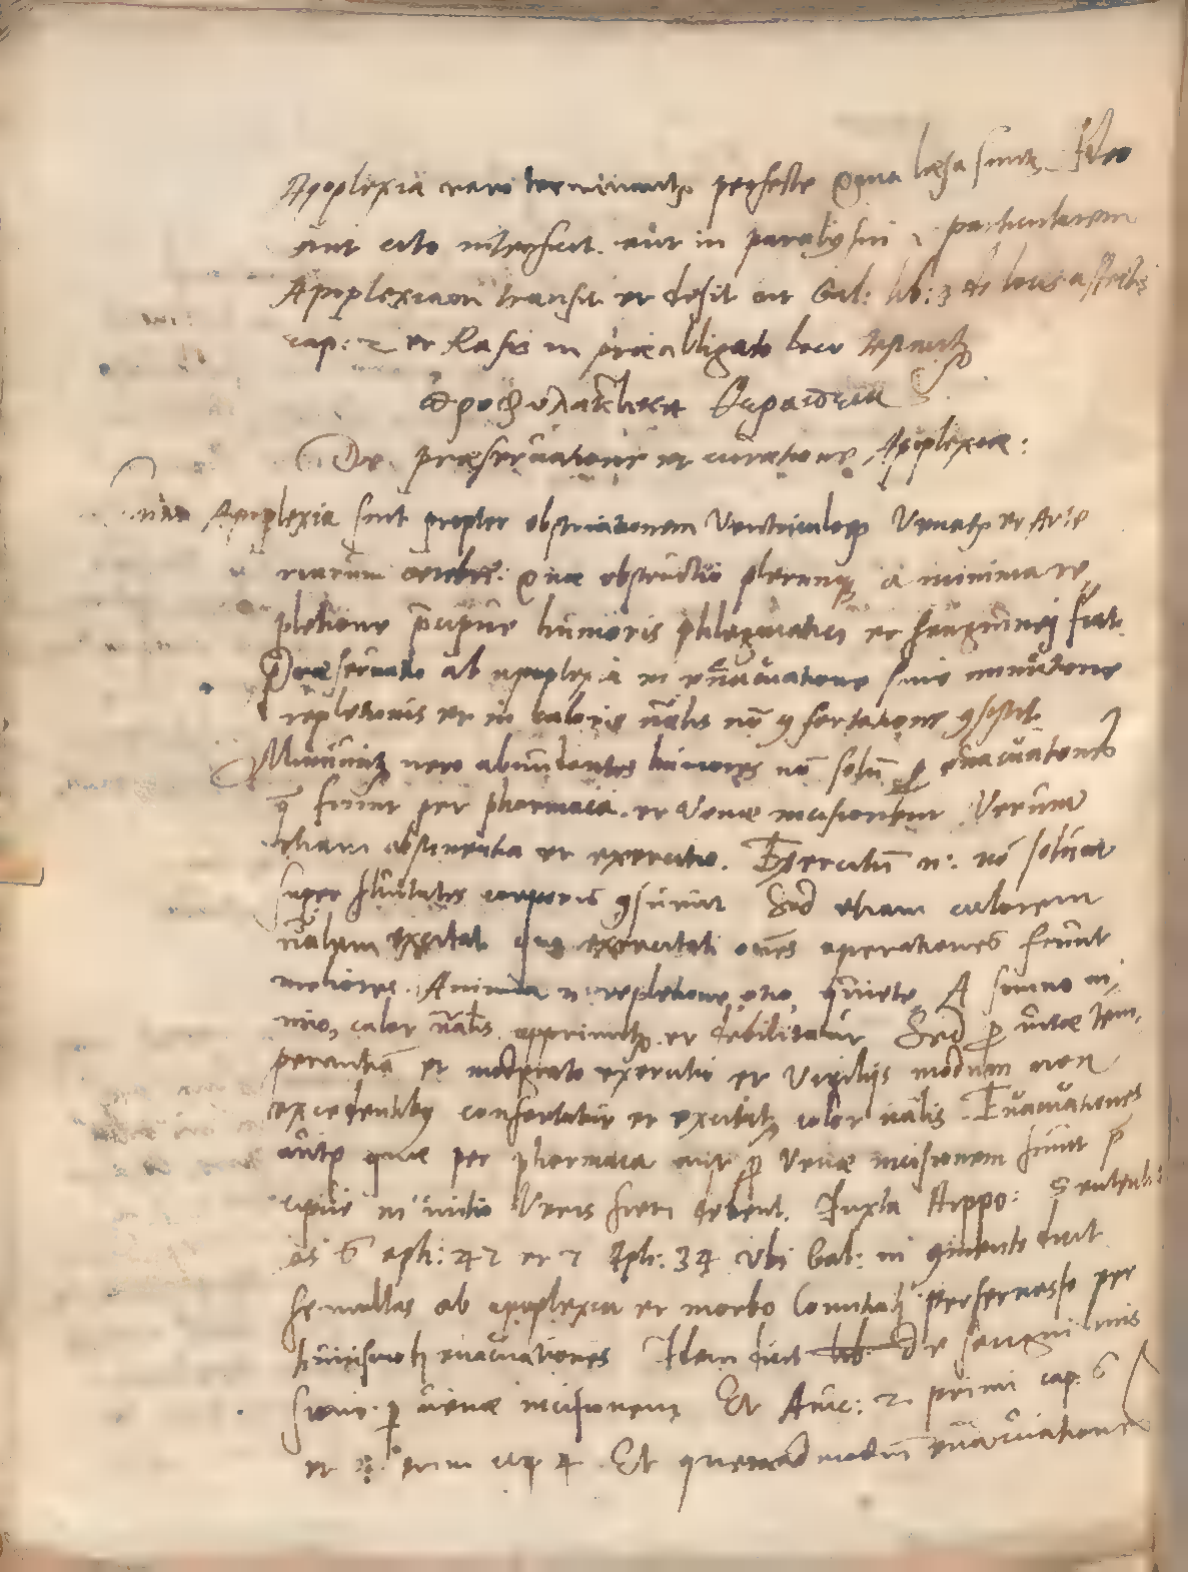 Apoplexia raro terminatur perfecte quia laesa sunt
aut cito interficit. aut in paralysin particularem
Apoplexiam transit et desit ut Gal: lib: 3 de locis affectis
cap: 2 et Rasis in praealligato loco testantur
De praeservatione et curatione Apoplexiae:
Apoplexia fiat propter obstructionem Ventriculorum Venarum et Arte
riarum cerebri: quae obstructio plerumque a nimia re,
pletione praecipue humoris phlegmatici et sanguinei fiat.
Praeservatio ab apoplexia in evacuatione sive minutione
repletionis et in caloris nālis confortatione consistit.
Minuuntur vero abundantes humores nō solū per evacuationes
quae fiunt per pharmaca. et venae incisionem Verum
etiam abstinentia et exercitio. Exercitiū n: nō solum
superfluitates corporis consumit Sed etiam calorem
nālem excitat quo excitati omēs operationes fiunt
meliores. Nimia n: repletione, otio, quiete, A somno ni,
mio, calor nālis opprimitur et debilitatur Sed per vitae tem,
perantiā et moderato exercitio et Vigiliis modum non
excedentibus confortatur et excitatur calor nālis. Evacuationes
autem quae per pharmaca aut per Venae incisionem fiunt prae
cipue in initio Veris fieri debent. Iuxta Hippo: Sententi
as 6 aph: 47 et 7 Aph: 34 Vbi Gal: in commento dicit
se multas ab apoplexia et morbo Comitiali perservasse per
huiusmodi evacuationes Idem dicit lib: de sanguinis
missione per venae incisionem Et Avic: 2 primi cap: 6
et primi cap 4 Et quemadmodum evacuatione